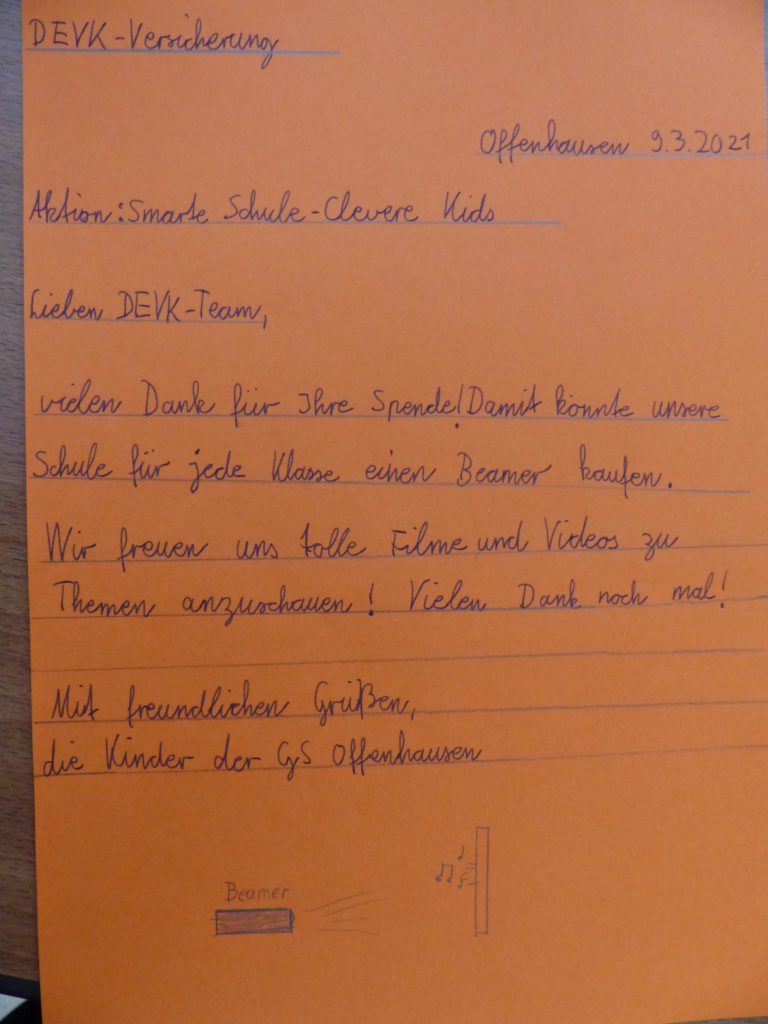 DEVK-Versicherung
Offenhausen 9.3.2021
Aktion: Smarte Schule-Clevere Kids
Lieben DEVK-Team,
vielen Dank für Ihre Spende! Damit konnte unsere
Schule für jede Klasse einen Beamer kaufen.
Wir freuen uns tolle Filme und Videos zu
Themen anzuschauen! Vielen Dank noch mal!
Mit freundlichen Grüßen,
die Kinder der GS Offenhausen
Beamer